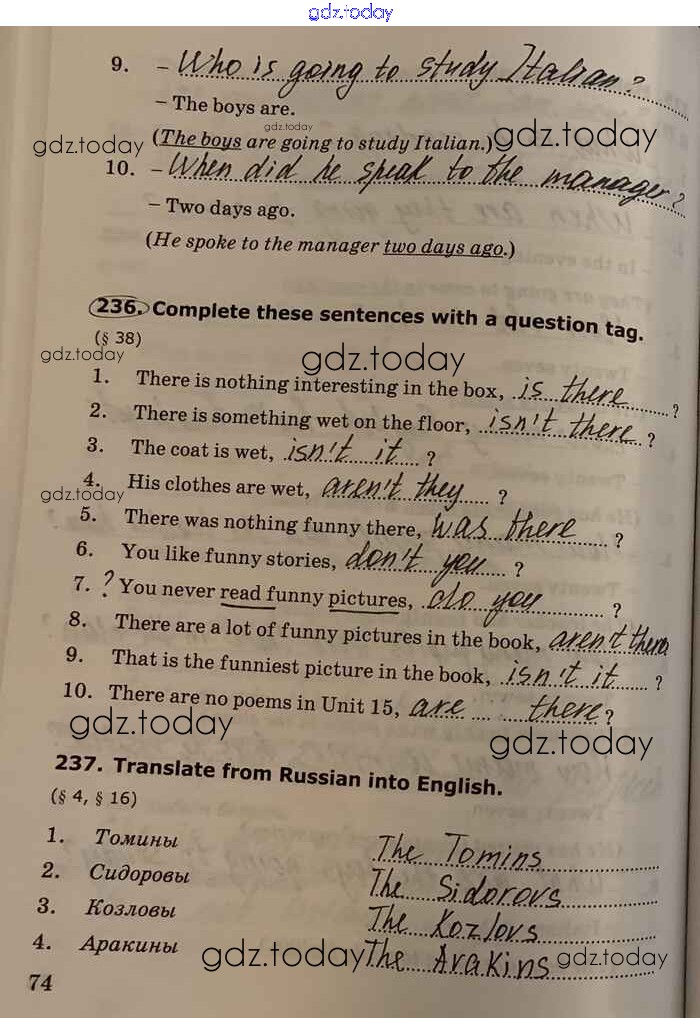 gdz.today
9. – Who is going to study Italian?
– The boys are.
gdz.today
gdz.today (The boys are going to study Italian.) gdz.today
10. – When did he speak to the manager?
– Two days ago.
(He spoke to the manager two days ago.)
236. Complete these sentences with a question tag.
(§ 38)
gdz.today gdz.today
1. There is nothing interesting in the box, is there ?
2. There is something wet on the floor, isn't there ?
3. The coat is wet, isn't it ?
4. His clothes are wet, aren't they ?
gdz.today
5. There was nothing funny there, was there ?
6. You like funny stories, don't you ?
7. ? You never read funny pictures, do you ?
8. There are a lot of funny pictures in the book, aren't there
9. That is the funniest picture in the book, isn't it ?
10. There are no poems in Unit 15, are there ?
gdz.today gdz.today
237. Translate from Russian into English.
(§ 4, § 16)
1. Томины The Tomins
2. Сидоровы The Sidorovs
3. Козловы The Kozlovs
4. Аракины The Arakins
gdz.today gdz.today
74